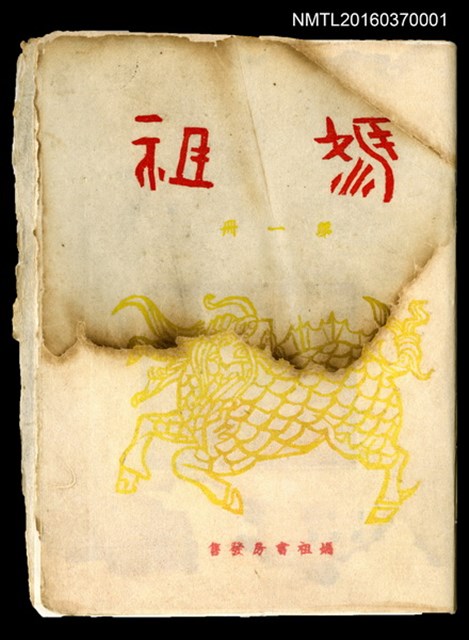 NMTL20160370001
媽祖
第一冊
媽祖書房發售